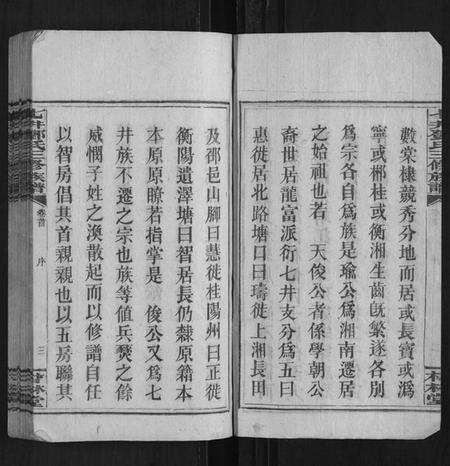 數棠棣競秀分地而居或長寶或溈
寧或郴桂或衡湘生齒既繁遂各別
為宗各自為族是瑜公為湘南遷居
之始祖也若 天俊公者係學朝公
奇世居龍富派衍七井支分為五曰
惠徙居北路塘口曰璹徙上湘長田
及邵邑山腳曰慧徙桂陽州曰正徙
衡陽遺澤塘曰智居長仍隸原籍本
本原原瞭若指掌是 俊公又為七
井族不遷之宗也族等值兵燹之餘
咸憫子姓之渙散起而以修譜自任
以智房倡其首親親也以五房聯其
七井鄧氏三修族譜
卷首 序
三